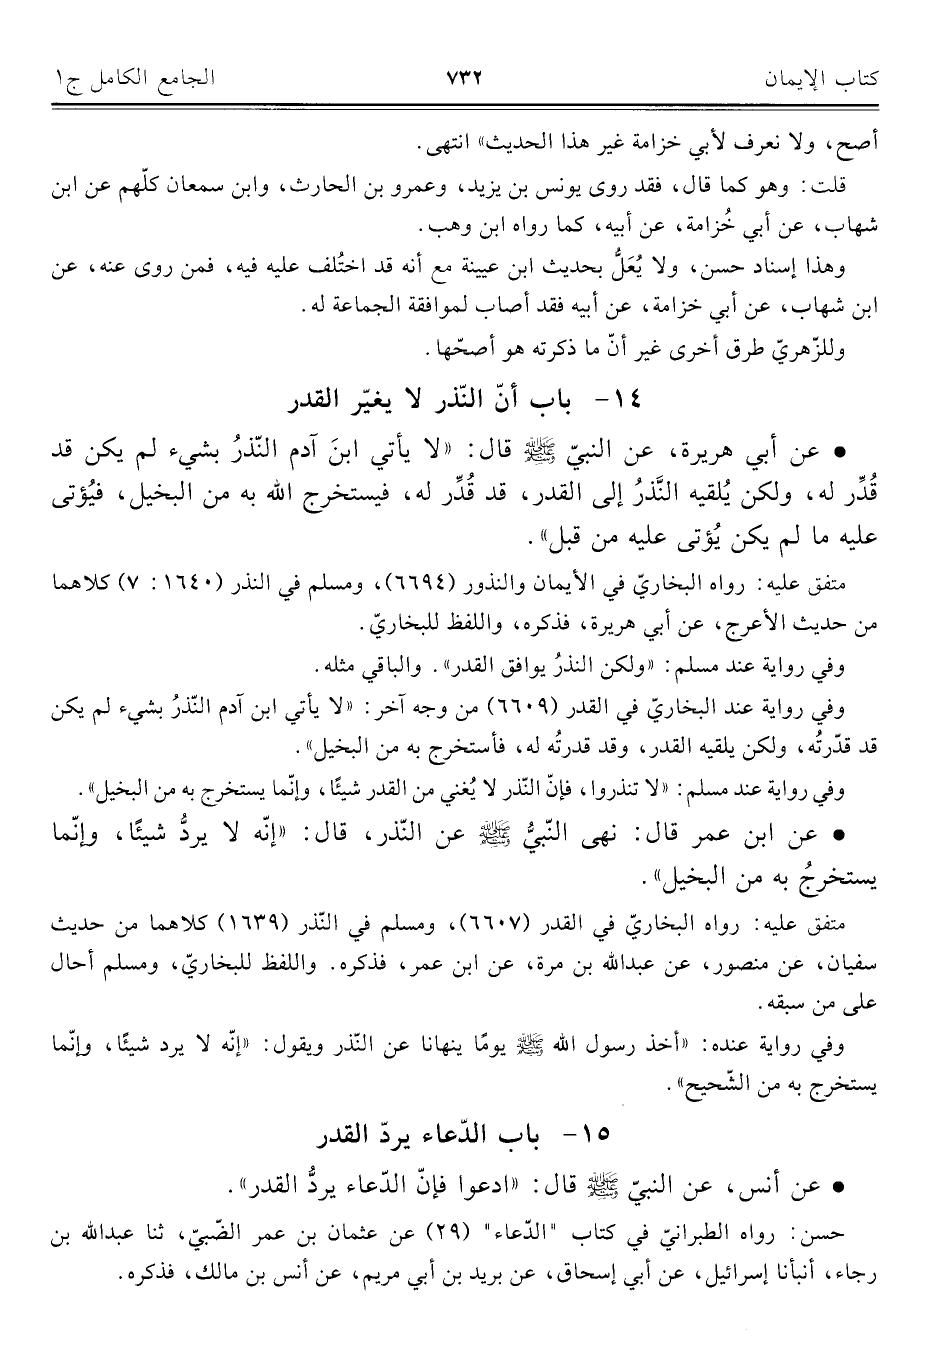 كتاب الإيمان ٧٣٢ الجامع الكامل ج١
أصح، ولا نعرف لأبي خزامة غير هذا الحديث» انتهى.
قلت: وهو كما قال، فقد روى يونس بن يزيد، وعمرو بن الحارث، وابن سمعان كلّهم عن ابن
شهاب، عن أبي خُزامة، عن أبيه، كما رواه ابن وهب.
وهذا إسناد حسن، ولا يُعَلُّ بحديث ابن عيينة مع أنه قد اختُلف عليه فيه، فمن روى عنه، عن
ابن شهاب، عن أبي خزامة، عن أبيه فقد أصاب لموافقة الجماعة له.
وللزّهريّ طرق أخرى غير أنّ ما ذكرته هو أصحّها.
١٤- باب أنّ النّذر لا يغيّر القدر
• عن أبي هريرة، عن النبيّ ﷺ قال: «لا يأتي ابنَ آدم النّذرُ بشيء لم يكن قد
قُدِّر له، ولكن يُلقيه النَّذرُ إلى القدر، قد قُدِّر له، فيستخرج الله به من البخيل، فيُؤتى
عليه ما لم يكن يُؤتى عليه من قبل».
متفق عليه: رواه البخاريّ في الأيمان والنذور (٦٦٩٤)، ومسلم في النذر (١٦٤٠: ٧) كلاهما
من حديث الأعرج، عن أبي هريرة، فذكره، واللفظ للبخاريّ.
وفي رواية عند مسلم: «ولكن النذرُ يوافق القدر». والباقي مثله.
وفي رواية عند البخاريّ في القدر (٦٦٠٩) من وجه آخر: «لا يأتي ابن آدم النّذرُ بشيء لم يكن
قد قدّرتُه، ولكن يلقيه القدر، وقد قدرتُه له، فأستخرج به من البخيل».
وفي رواية عند مسلم: «لا تنذروا، فإنّ النّذر لا يُغني من القدر شيئًا، وإنّما يستخرج به من البخيل».
• عن ابن عمر قال: نهى النّبيُّ ﷺ عن النّذر، قال: «إنّه لا يردُّ شيئًا، وإنّما
يستخرجُ به من البخيل».
متفق عليه: رواه البخاريّ في القدر (٦٦٠٧)، ومسلم في النّذر (١٦٣٩) كلاهما من حديث
سفيان، عن منصور، عن عبدالله بن مرة، عن ابن عمر، فذكره. واللفظ للبخاريّ، ومسلم أحال
على من سبقه.
وفي رواية عنده: «أخذ رسول الله ﷺ يومًا ينهانا عن النّذر ويقول: «إنّه لا يرد شيئًا، وإنّما
يستخرج به من الشّحيح».
١٥- باب الدّعاء يردّ القدر
• عن أنس، عن النبيّ ﷺ قال: «ادعوا فإنّ الدّعاء يردُّ القدر».
حسن: رواه الطبرانيّ في كتاب "الدّعاء" (٢٩) عن عثمان بن عمر الضّبيّ، ثنا عبدالله بن
رجاء، أنبأنا إسرائيل، عن أبي إسحاق، عن بريد بن أبي مريم، عن أنس بن مالك، فذكره.